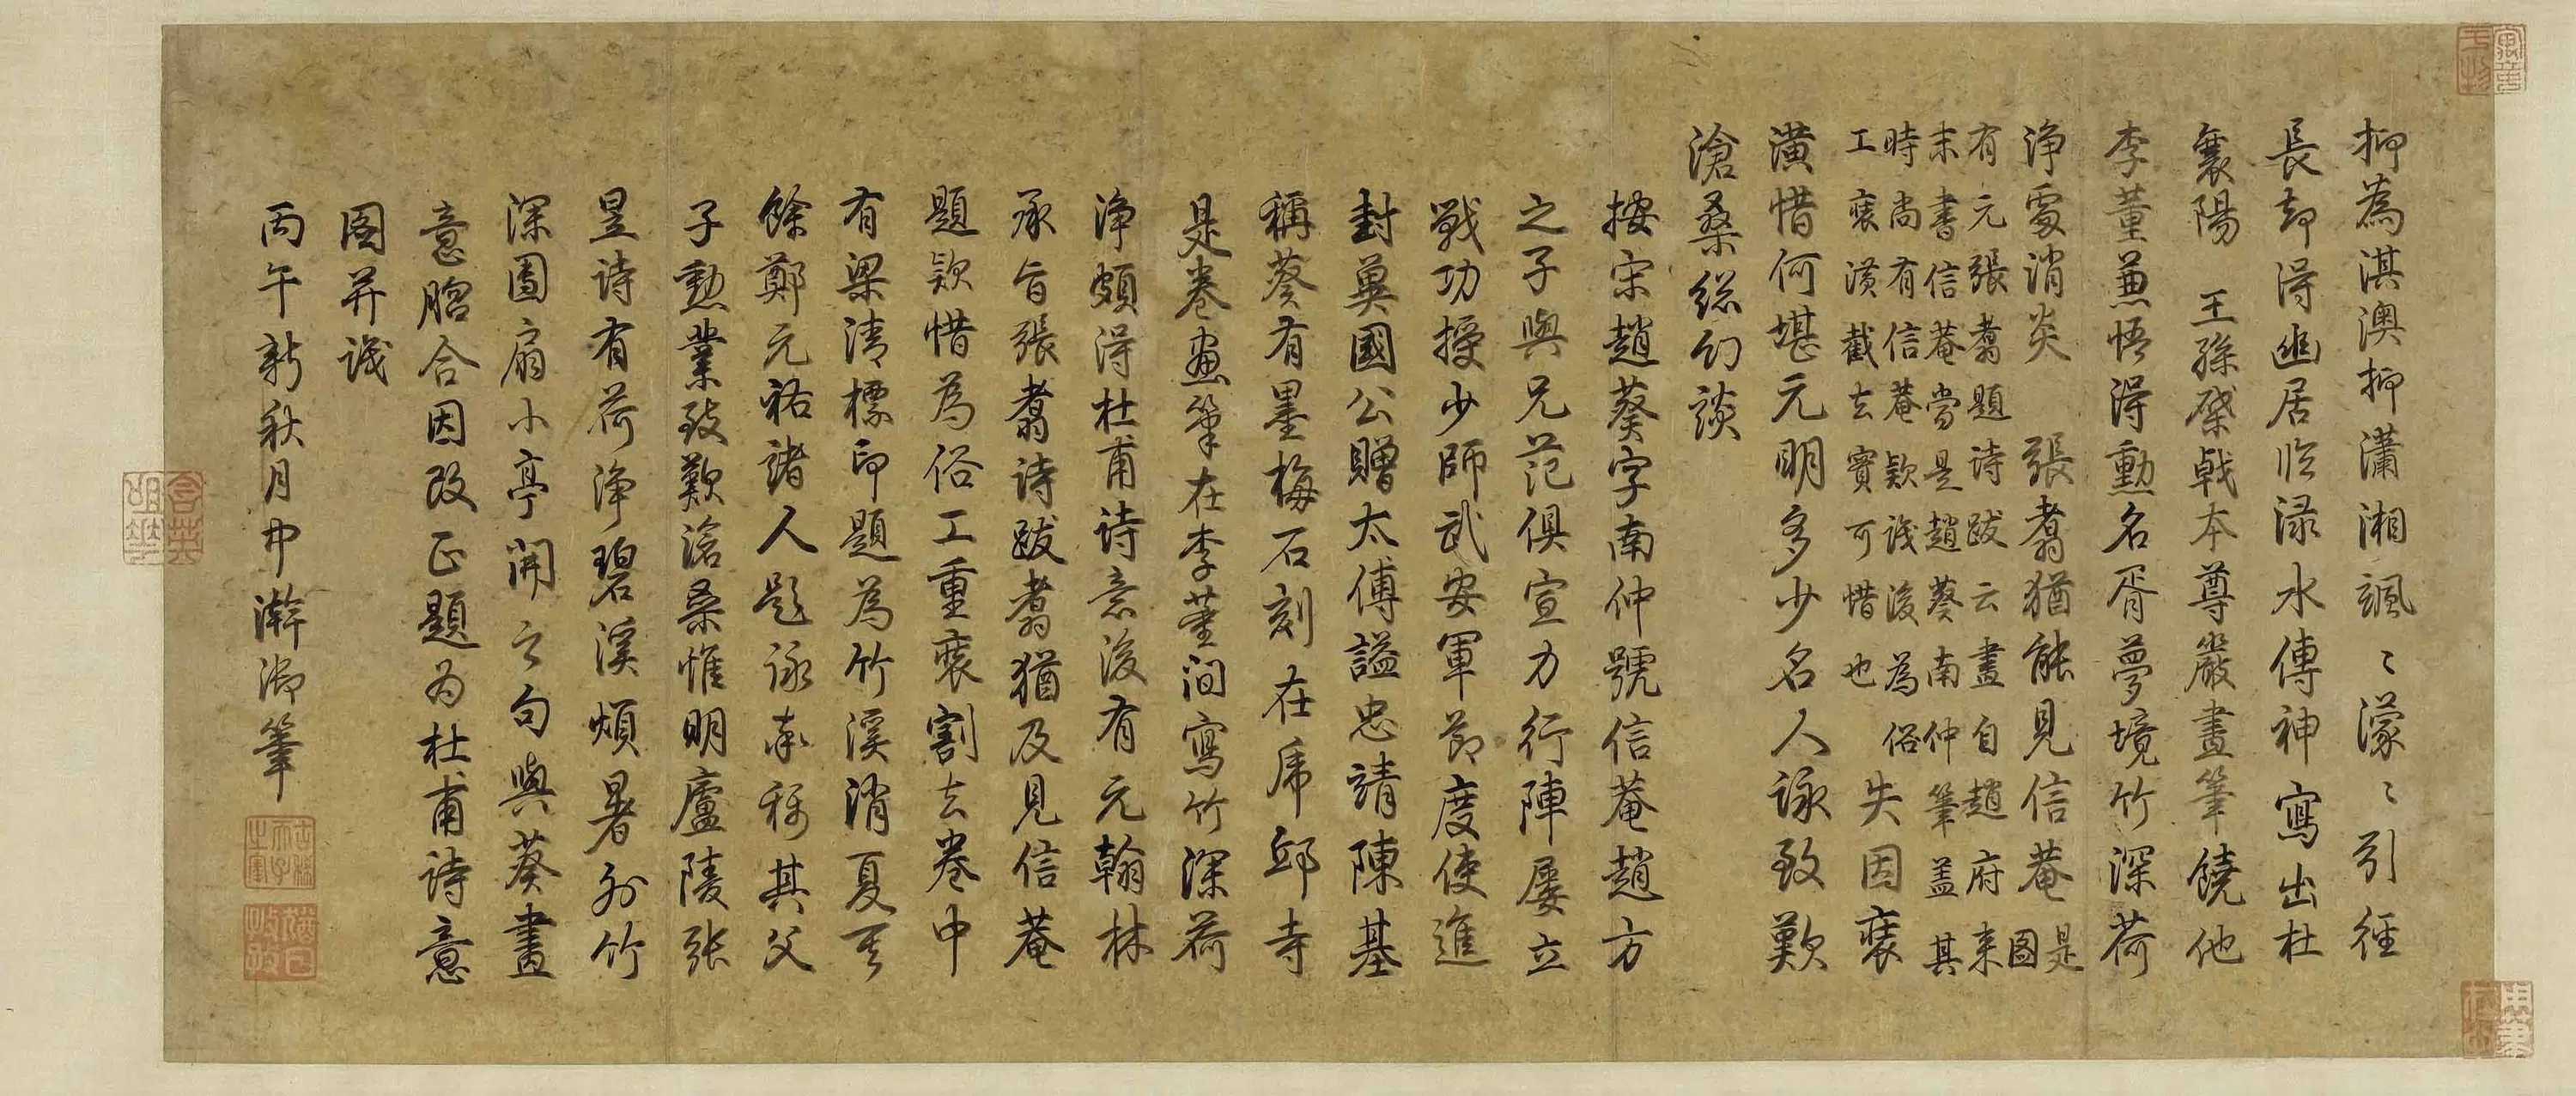 抑為淇澳抑瀟湘颯〻濛〻引徑
長却得幽居臨渌水傳神寫出杜
襄陽　王孫棨戟本尊嚴畫筆饒他
李董兼悟得勳名胥夢境竹深荷
淨處消炎　張翥猶能見信菴是圖
有元張翥題詩跋云畫自趙府来
末書信菴當是趙葵南仲筆盖其
時尚有信菴款識後為俗
工裘潢截去實可惜也　失因裘
潢惜何堪元明多少名人詠致歎
滄桑総幻談
按宋趙葵字南仲號信菴趙方
之子與兄范俱宣力行陣屡立
戰功授少師武安軍節度使進
封兾國公贈太傅謚忠靖陳基
稱葵有墨梅石刻在虎邱寺
是卷畫筆在李董间寫竹深荷
淨頗得杜甫詩意後有元翰林
承旨張翥詩跋翥猶及見信菴
題款惜為俗工重裘割去卷中
有梁清標印題為竹溪消夏其
餘鄭元祐諸人題詠率稱其父
子勲業致歎滄桑惟明廬陵张
昱诗有荷淨碧溪煩暑外竹
深團扇小亭開之句與葵畫
意脗合因改正題为杜甫诗意
圖并識
丙午新秋月中澣御筆